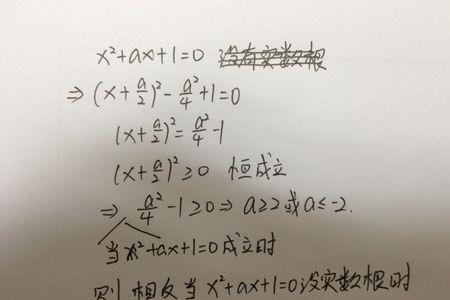 x²+ax+1=0 没有实数根
⇒ (x+a/2)²-a²/4+1=0
(x+a/2)²=a²/4-1
(x+a/2)²≥0 恒成立
⇒ a²/4-1≥0⇒a≥2或a≤-2.
当x²+ax+1=0成立时
则相反当x²+ax+1=0没实数根时